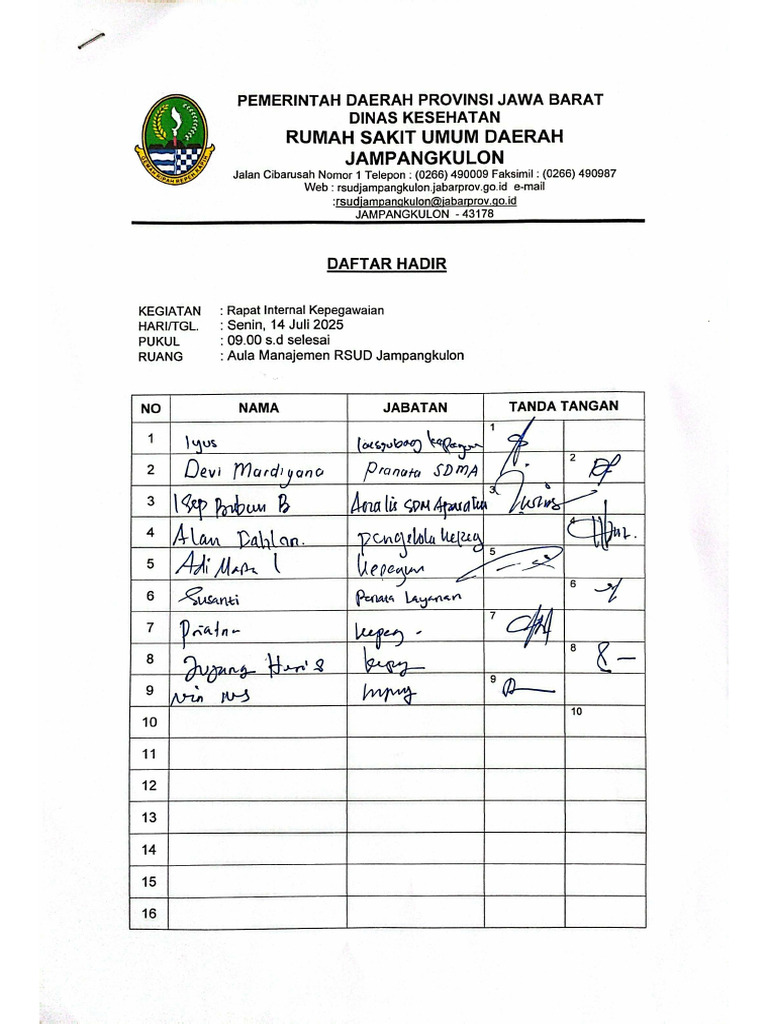 PEMERINTAH DAERAH PROVINSI JAWA BARAT
DINAS KESEHATAN
RUMAH SAKIT UMUM DAERAH
JAMPANGKULON
Jalan Cibarusah Nomor 1 Telepon : (0266) 490009 Faksimil : (0266) 490987
Web : rsudjampangkulon.jabarprov.go.id e-mail
:rsudjampangkulon@jabarprov.go.id
JAMPANGKULON - 43178
DAFTAR HADIR
KEGIATAN : Rapat Internal Kepegawaian
HARI/TGL. : Senin, 14 Juli 2025
PUKUL : 09.00 s.d selesai
RUANG : Aula Manajemen RSUD Jampangkulon
NO NAMA JABATAN TANDA TANGAN
1 Iyus 1
2 Devi Mardiyana Pranata SDMA 2
3 Analis SDM Aparatur 3
4 Alan Dahlan. pengelola kepeg 4
5 Adi 5
6 Susanti Penata Layanan 6
7 kepeg - 7
8 Heri S 8
9 9
10 10
11
12
13
14
15
16